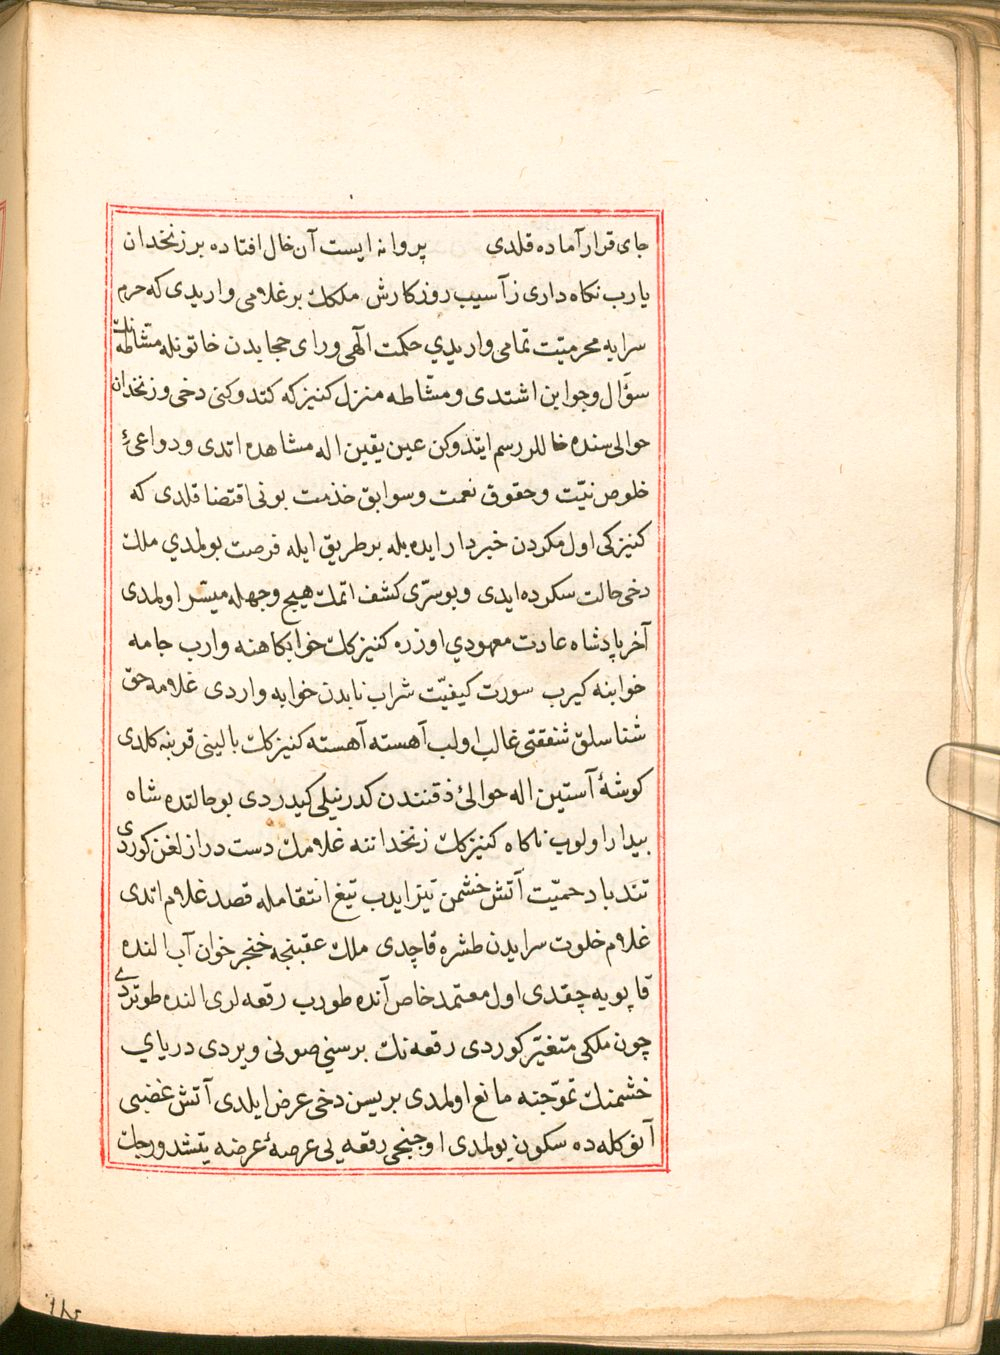 جای قرار آماده قلدی پروانه ایست آن خال افتاده بر زنخدان
یا رب نکاه داری ز آسیب روزکارش ملکك بر غلامی واریدی که حرم
سرایه محرمیّت تمامی واریدي حکمت الٓهی ورای حجابدن خاتونله مشّاطه نك
سؤال وجوابن اشتدی ومشّاطه منزل کنیزکه کتدوکنی دخی وزنخدان
حوالی سنده خاللر رسم ایتدوکن عین یقین اله مشاهده اتدی ودواعیٔ
خلوص نیّت وحقوق نعمت وسوابق خذمت بونی اقتضا قلدی که
کنیزکی اول مکردن خبردار ایده بله بر طریق ایله فرصت بولمدي ملك
دخی حالت سکرده ایدی وبو سرّی کشف اتمك هیچ وجهله میسّر اولمدی
آخر پادشاه عادت معهودي اوزره کنیزکك خوابکاهنه وارب جامه
خوابنه کیرب سورت کیفیّت شراب نابدن خوابه واردی غلامه حق
شناسلق شفقتی غالب اولب آهسته آهسته کنیزکك بالینی قربنه کلدی
کوشهٔ آستین اله حوالیٔ ذقنندن کدر نیلی کیدردی بو حالتده شاه
بیدار اولوب ناکاه کنیزکك زنخداننه غلامك دست درازلغن کوردی
تندباد حمیّت آتش خشمن تیز ایدب تیغ انتقامله قصد غلام اتدی
غلام خلوت سرایدن طشره قاچدی ملك عقبنجه خنجر خوان آب النده
قاپویه چقدی اول معتمد خاص آنده طورب رقعه لری النده طوتردي
چون ملکی متغیّر کوردی رقعه نك برسني صونی ویردی دریاي
خشمنك تموّجنه مانع اولمدی بریسن دخی عرض ایلدی آتش غضبی
آنوکله ده سکون بولمدی اوچنجی رقعه یی عرصهٔ عرضه یتشدورجك